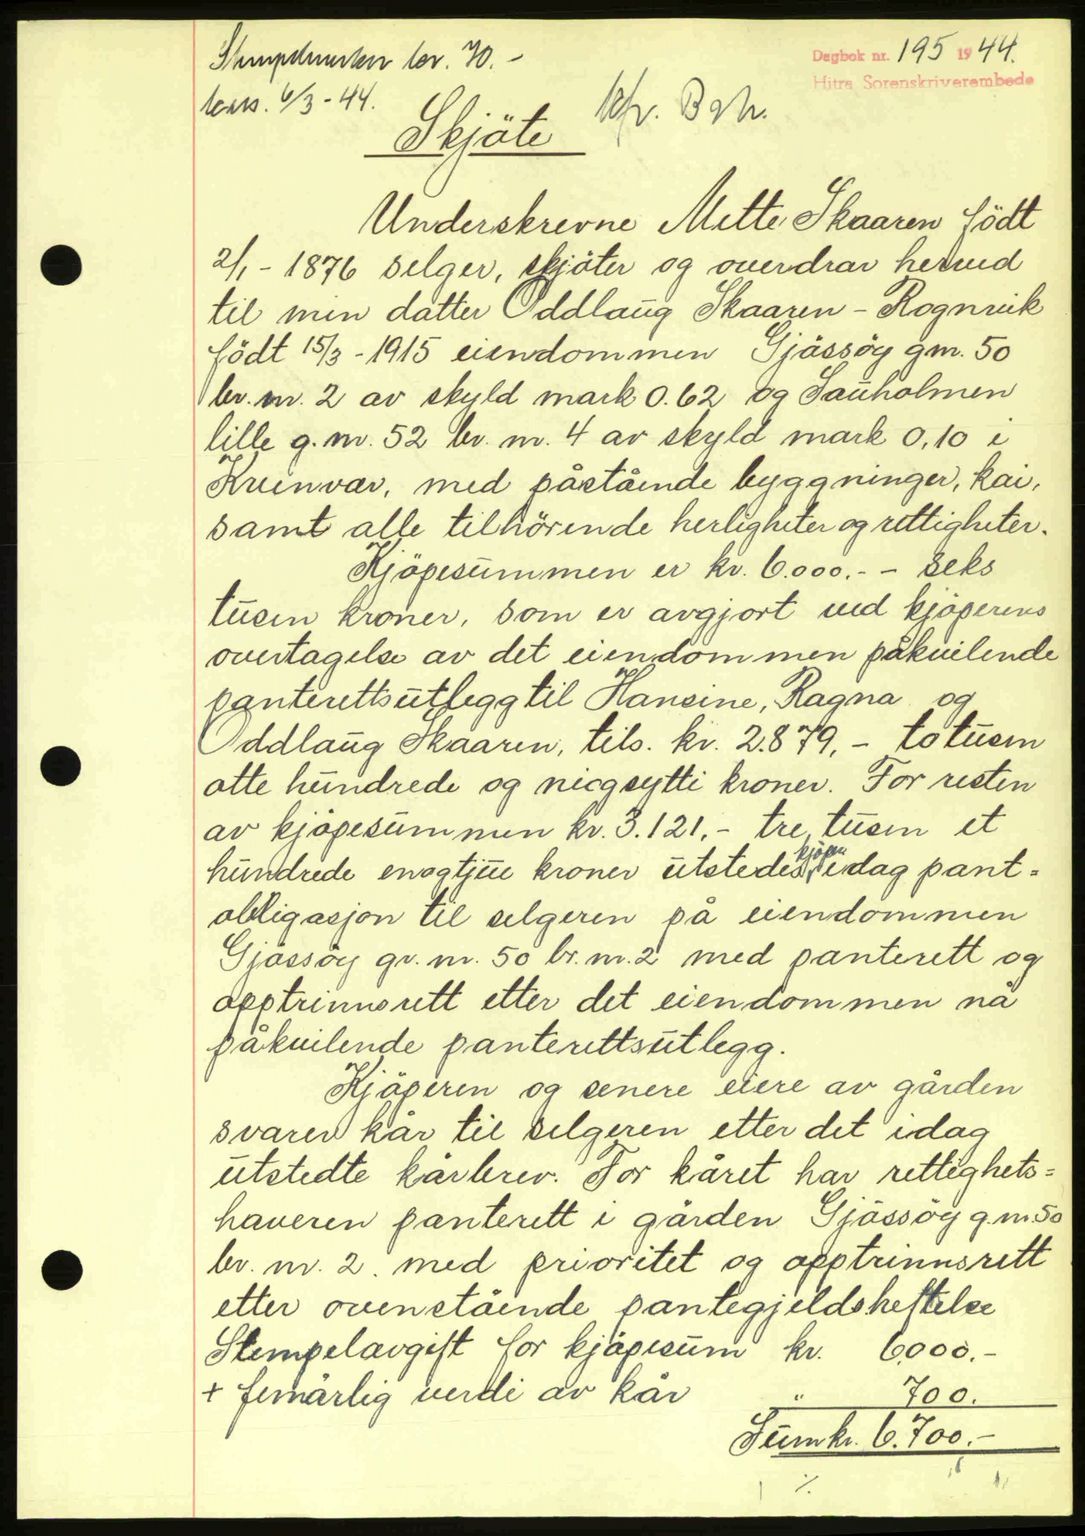 Stempelmerker kr. 70.-
kass. 6/3-44.
Dagbok nr. 195 1944.
Hitra Sorenskriverembede
Skjöte
Underskrevne Mette Skaaren födt
2/1 - 1876 selger, skjöter og overdrar herved
til min datter Oddlaug Skaaren - Rognvik
födt 15/3 - 1915 eiendommen Gjässöy gnr. 50
br. nr. 2 av skyld mark 0.62 og Sauholmen
lille g. nr. 52 br. nr. 4 av skyld mark 0,10 i
Kvenvær, med påstående byggninger, kai,
samt alle tilhörende herligheter og rettigheter.
Kjöpesummen er kr. 6.000.- - seks
tusen kroner, som er avgjort ved kjöperens
overtagelse av det eiendommen påkvilende
panterettsutlegg til Hansine, Ragna og
Oddlaug Skaaren, tils. kr. 2.879,- totusen
otte hundrede og niogsytti kroner. For resten
av kjöpesummen kr. 3.121,- tre tusen et
hundrede enogtjue kroner utstedes kjöper idag pant=
obligasjon til selgeren på eiendommen
Gjässöy gr. nr. 50 br. nr. 2 med panterett og
opptrinnsrett etter det eiendommen nå
påkvilende panterettsutlegg.
Kjöperen og senere eiere av gården
svarer kår til selgeren etter det idag
utstedte kårbrev. For kåret har rettighets=
haveren panterett i gården Gjässöy g. nr. 50
br. nr. 2. med prioritet og opptrinnsrett
etter ovenstående pantegjeldsheftelse
Stempelavgift for kjöpesum kr. 6000.-
+ femårlig verdi av kår " 700.
Sum kr. 6.700.-